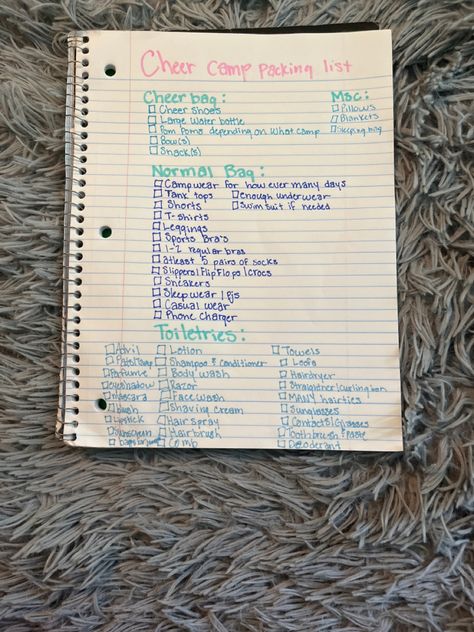 Cheer camp packing list
Cheer bag:
Cheer shoes
Large water bottle
Pom Poms depending on what camp
Bow(s)
Snack(s)
Msc:
Pillows
Blankets
Sleeping bag
Normal Bag:
Camp wear for how ever many days
Tank tops
Shorts
T-shirts
Leggings
Sports Bra's
1-2 regular bras
atleast 5 pairs of socks
Slippers/FlipFlops/crocs
Sneakers
Sleepwear/Pjs
Casual wear
Phone Charger
enough underwear
Swimsuit if needed
Toiletries:
Advil
Pads/Tamp
Perfume
eyeshadow
mascara
blush
lipstick
Sunscreen
Lotion
Shampoo & Conditioner
Body wash
Razor
Face wash
Shaving cream
Hair spray
Hairbrush
Comb
Towels
Loofa
Hairdryer
Straightener/Curling Iron
MANY hairties
Sunglasses
Contacts/Glasses
Toothbrush/Paste
Deodorant